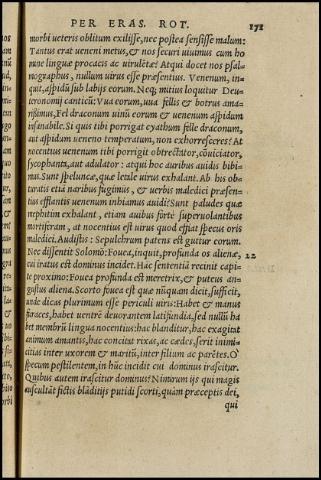 PER ERAS. ROT. 171
morbi ueteris oblitum exilisse, nec postea sensisse malum:
Tantus erat ueneni metus, & nos securi uiuimus cum ho
mine linguæ procacis ac uirulētæ? Atqui docet nos psal-
mographus, nullum uirus esse præsentius. Venenum, in-
quit, aspidū sub labijs eorum. Neq; mitius loquitur Deu-
teronomij canticū: Vua eorum, uua fellis & botrus ama-
rißimus, Fel draconum uinū eorum & uenenum aspidum
insanabile. Si quis tibi porrigat cyathum felle draconum,
aut aspidum ueneno temperatum, non exhorresceres? At
nocentius uenenum tibi porrigit obtrectator, cōuiciator,
sycophanta, aut adulator: atqui hoc auribus auidis bibi-
mus. Sunt speluncæ, quæ letale uirus exhalant. Ab his ob-
turatis etiā naribus fugimus, & uerbis maledici præsen-
tius efflantis uenenum inhiamus auidi? Sunt paludes quæ
mephitim exhalant, etiam auibus forte superuolantibus
mortiferam, at nocentius est uirus quod efflat specus oris
maledici. Audistis: Sepulchrum patens est guttur eorum.
Nec dissentit Solomō: Fouea, inquit, profunda os alienæ, 22
cui iratus est dominus incidet. Hāc sententiā recinit capi-
te proximo: Fouea profunda est meretrix, & puteus an-
gustus aliena. Scorto fouea est quæ nūquam dicit, sufficit,
unde dicas plurimum esse periculi uiris: Habet & manus
furaces, habet uentrē deuorantem latifundia, sed nullū ha
bet membrū lingua nocentius: hac blanditur, hac exagitat
animum amantis, hac concitat rixas, ac cædes, serit inimi-
citias inter uxorem & maritū, inter filium ac parētes. O
specum pestilentem, in hūc incidit cui dominus irascitur.
Quibus autem irascitur dominus? Nimirum ijs qui magis
auscultāt fictis blāditijs putidi scorti, quàm præceptis dei,
qui